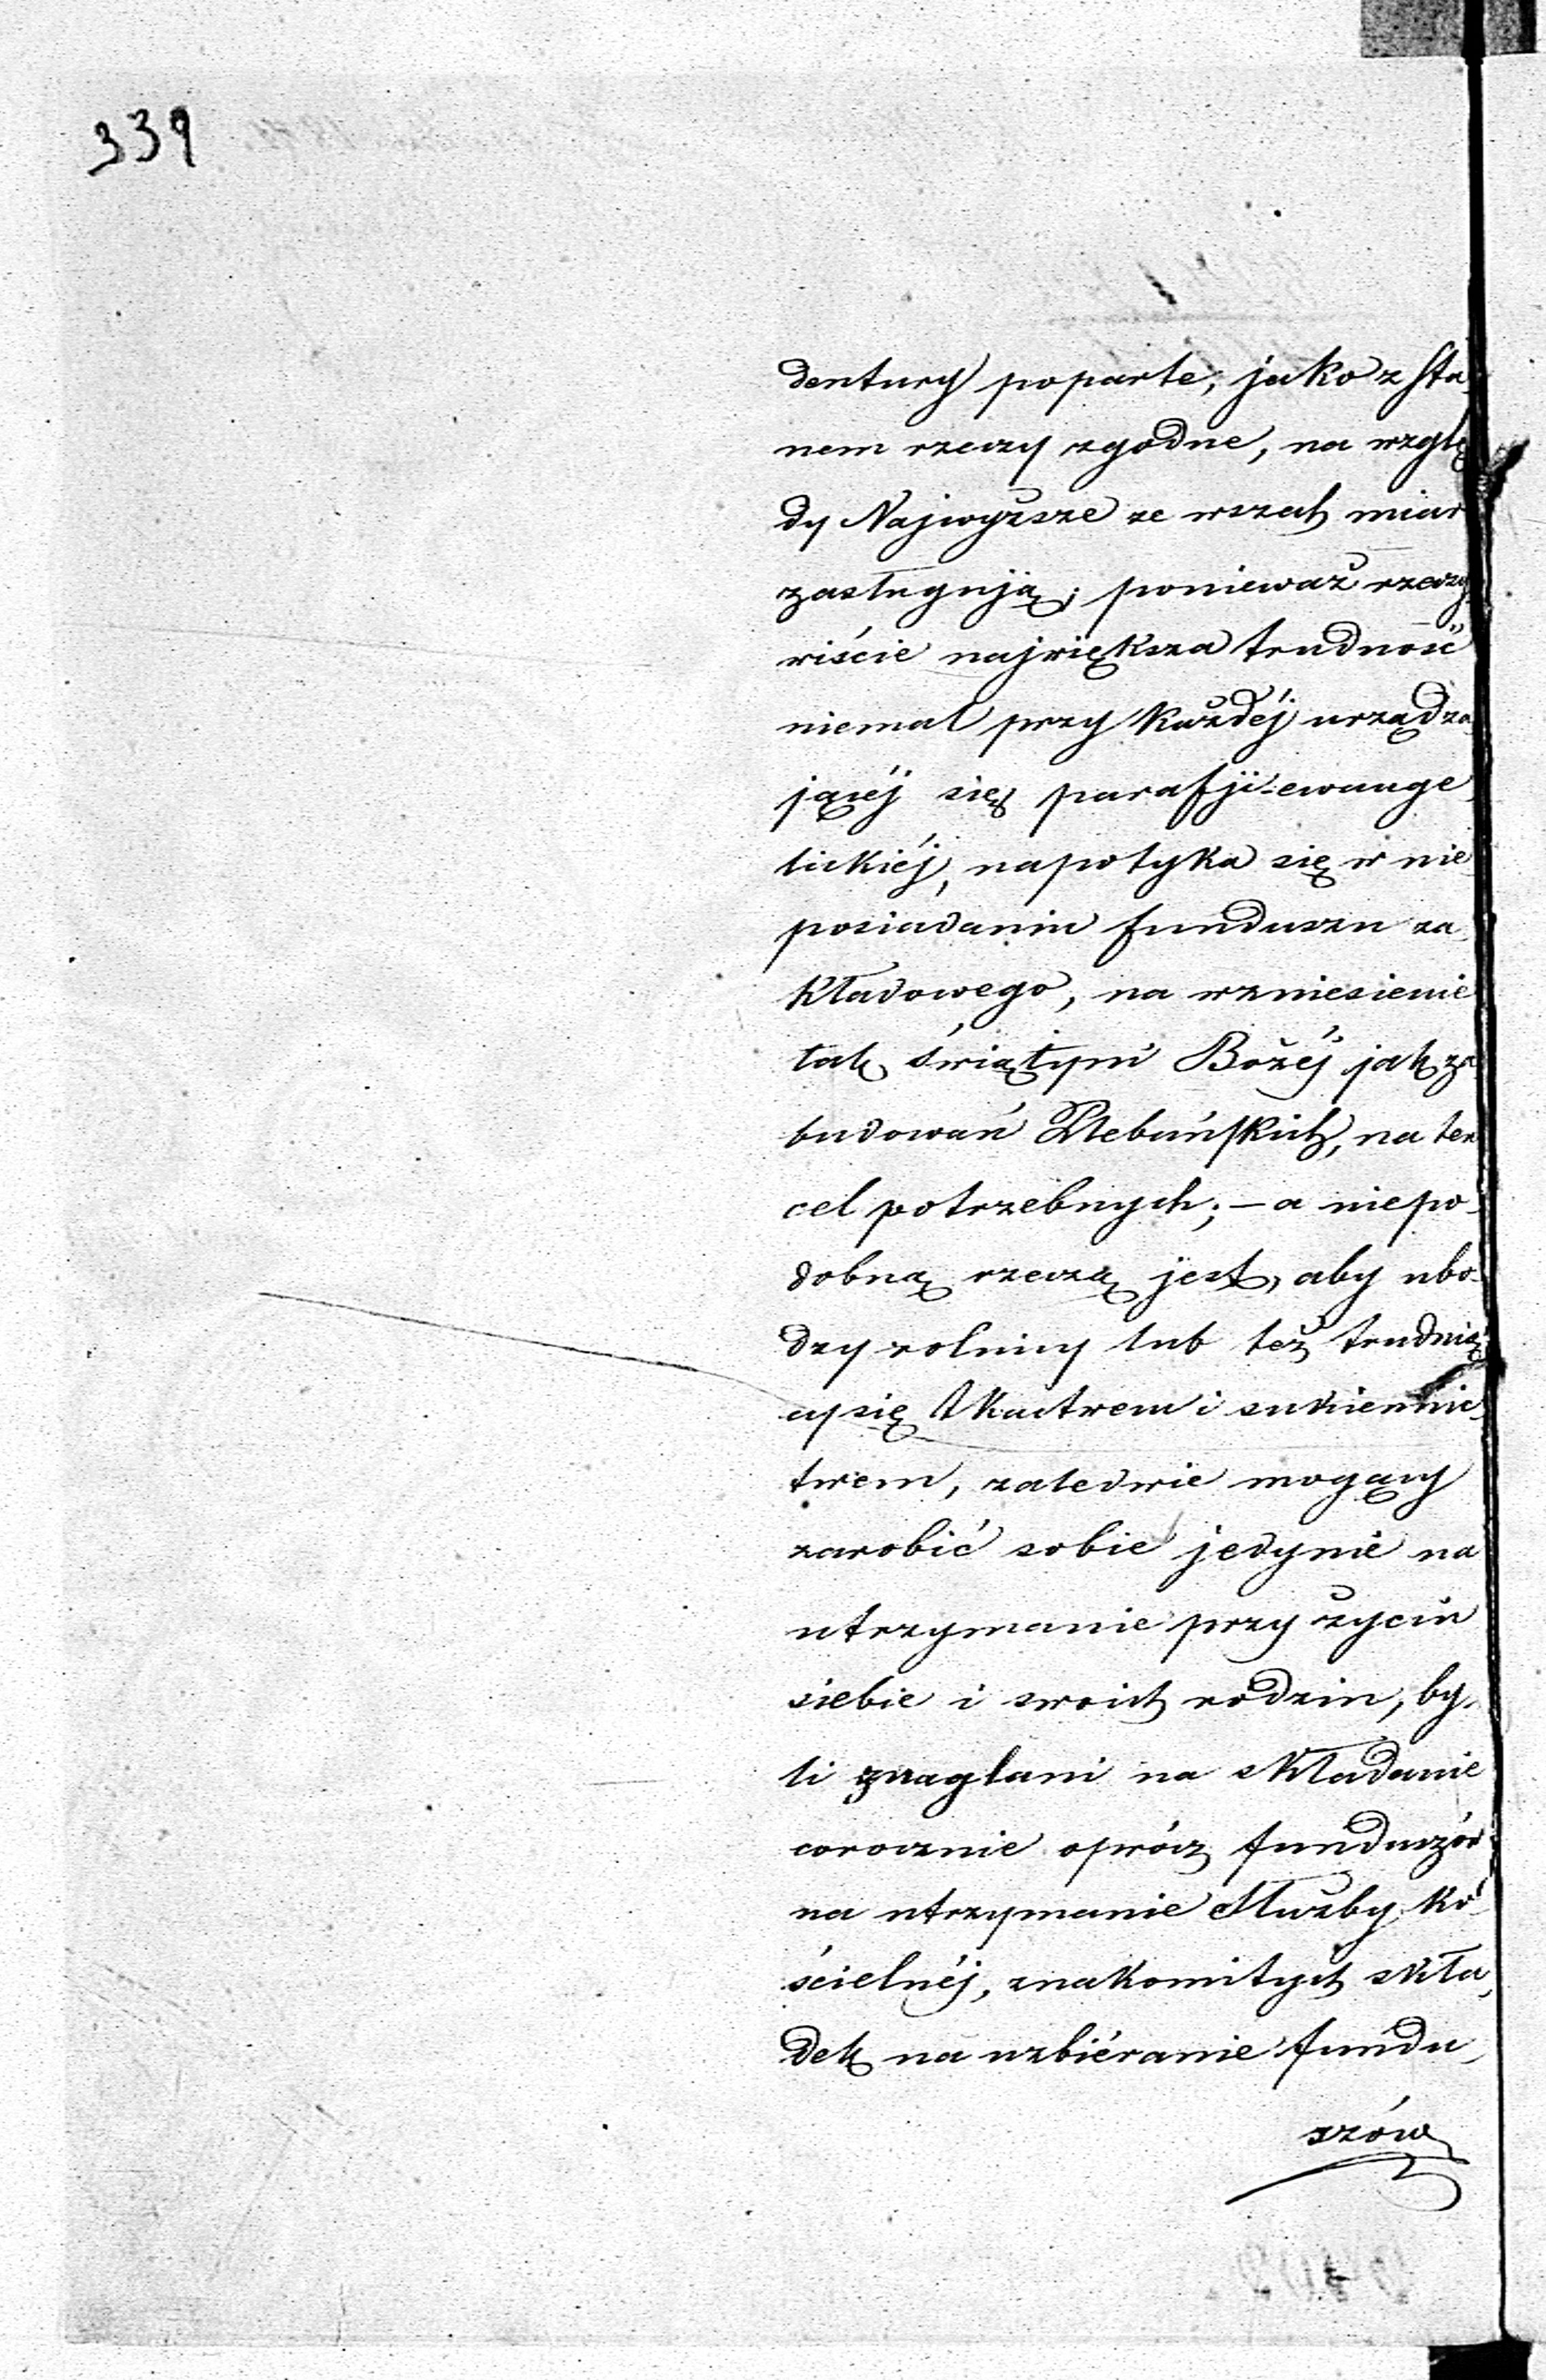 339
dentury poparte, jako z sta-
nem rzeczy zgodne, na wzglę
dy Najwyższe ze wszech miar
zasługują; ponieważ rzeczy
wiście największa trudność
niemal przy każdéj urządza
jącéj się parafji ewange,
lickiéj, napotyka się w nie
posiadaniu funduszu za,
kładowego, na wzniesienie
tak świątyni Bożéj jak za
budowań Plebańskich, na ten
cel potrzebnych; – a niepo-
dobną rzeczą jest, aby ubo-
dzy rolnicy lub też trudnią
cy się tkactwem i sukiennic,
twem, zaledwie mogący
zarobić sobie jedynie na
utrzymanie przy życiu
siebie i swoich rodzin, by,
li znaglani na składanie
corocznie oprócz funduszów
na utrzymanie Służby ko-
ścielnéj, znakomitych skła,
dek na uzbiéranie fundu,
szów